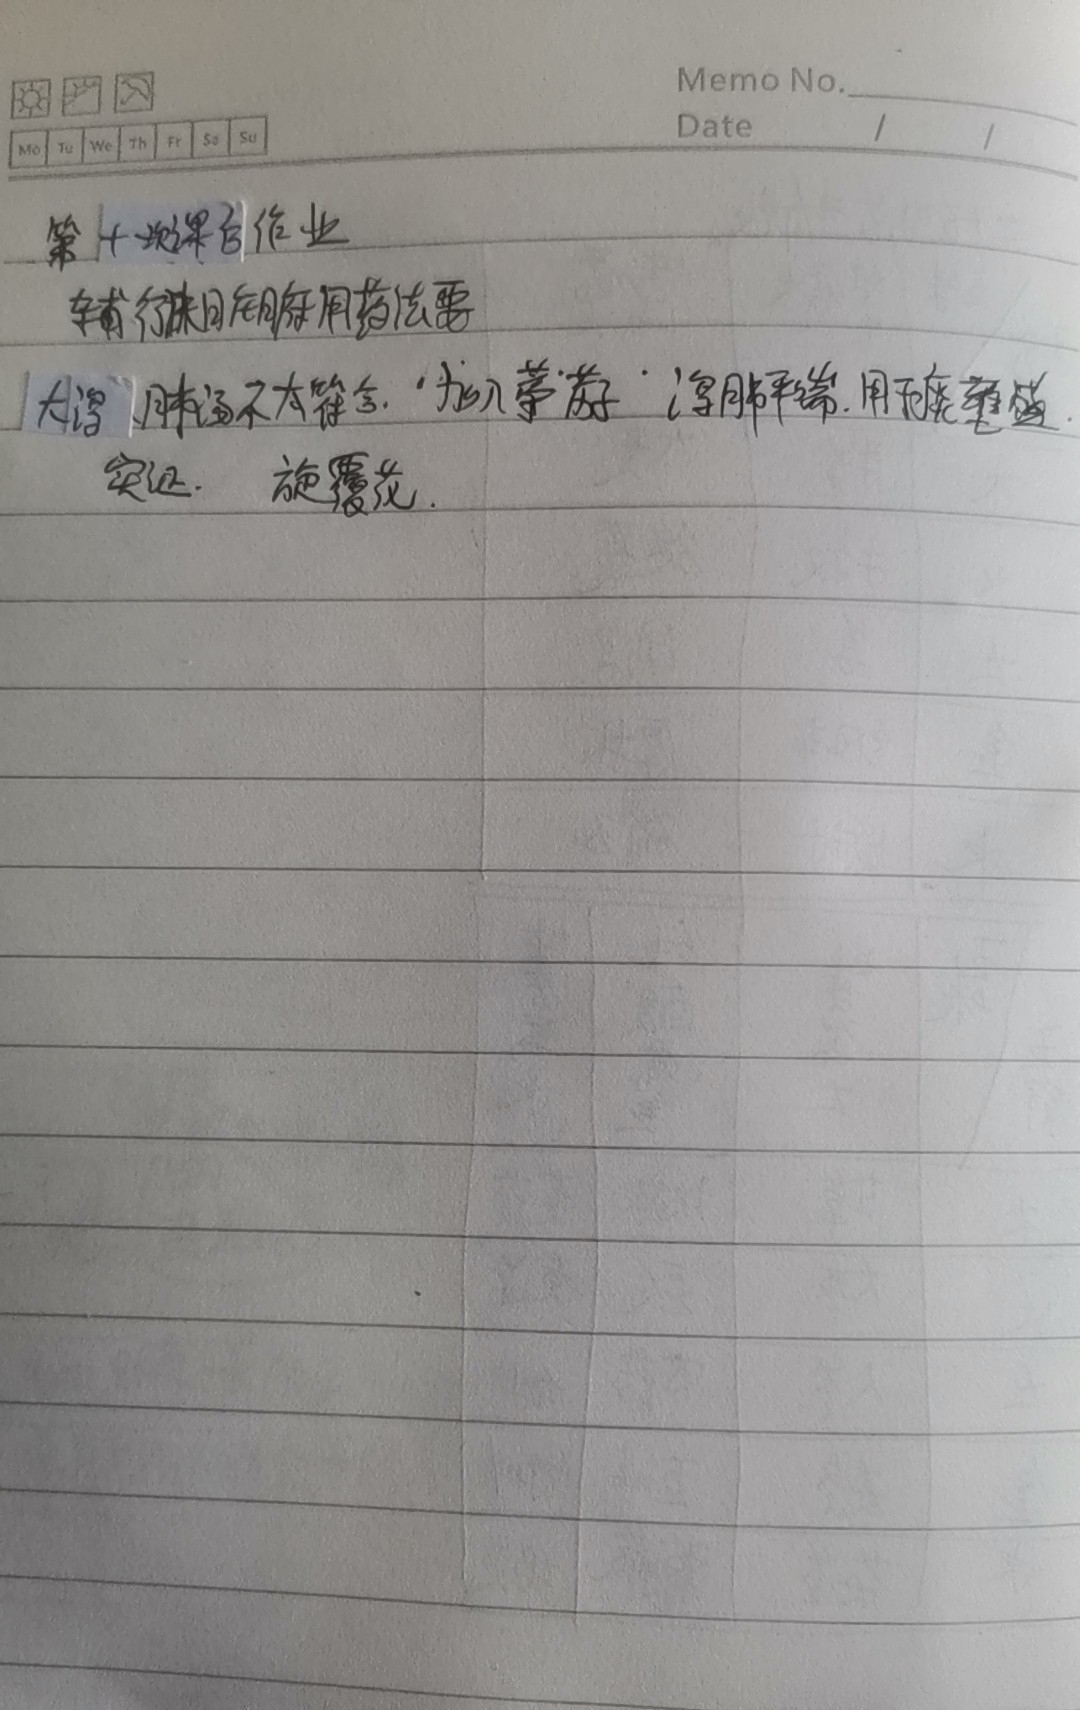 Memo No.
Date / /
Mo Tu We Th Fr Sa Su
第十次课后作业
辅行诀脏腑用药法要
大泻肺汤不太符合.“加入葶苈子”泻肺平喘.用于痰壅盛.
实证. 旋覆花.